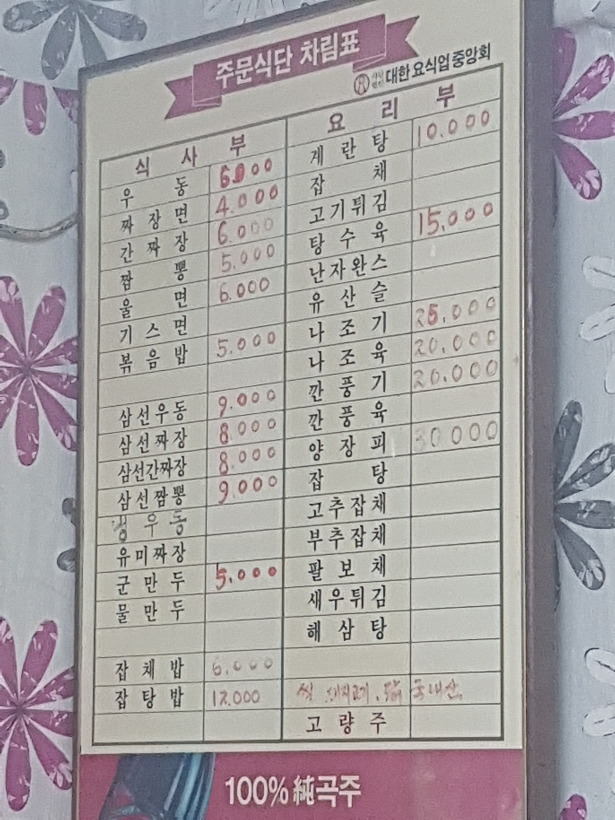 주문식단 차림표
대한요식업중앙회
식 사 부
우 동 6.000
짜 장 면 4.000
간 짜 장 6.000
짬 뽕 5.000
울 면 6.000
기 스 면
볶 음 밥 5.000
삼선우동 9.000
삼선짜장 8.000
삼선간짜장 8.000
삼선짬뽕 9.000
우 동
유미짜장
군 만 두 5.000
물 만 두
잡 채 밥 6.000
잡 탕 밥 12.000
요 리 부
계 란 탕 10.000
잡 채
고기튀김
탕 수 육 15,000
난자완스
유 산 슬
나 조 기 25,000
나 조 육 20.000
깐 풍 기 20.000
깐 풍 육
양 장 피 30000
잡 탕
고추잡채
부추잡채
팔 보 채
새우튀김
해 삼 탕
쌀 돼지고기. 닭 국내산
고 량 주
100% 純곡주